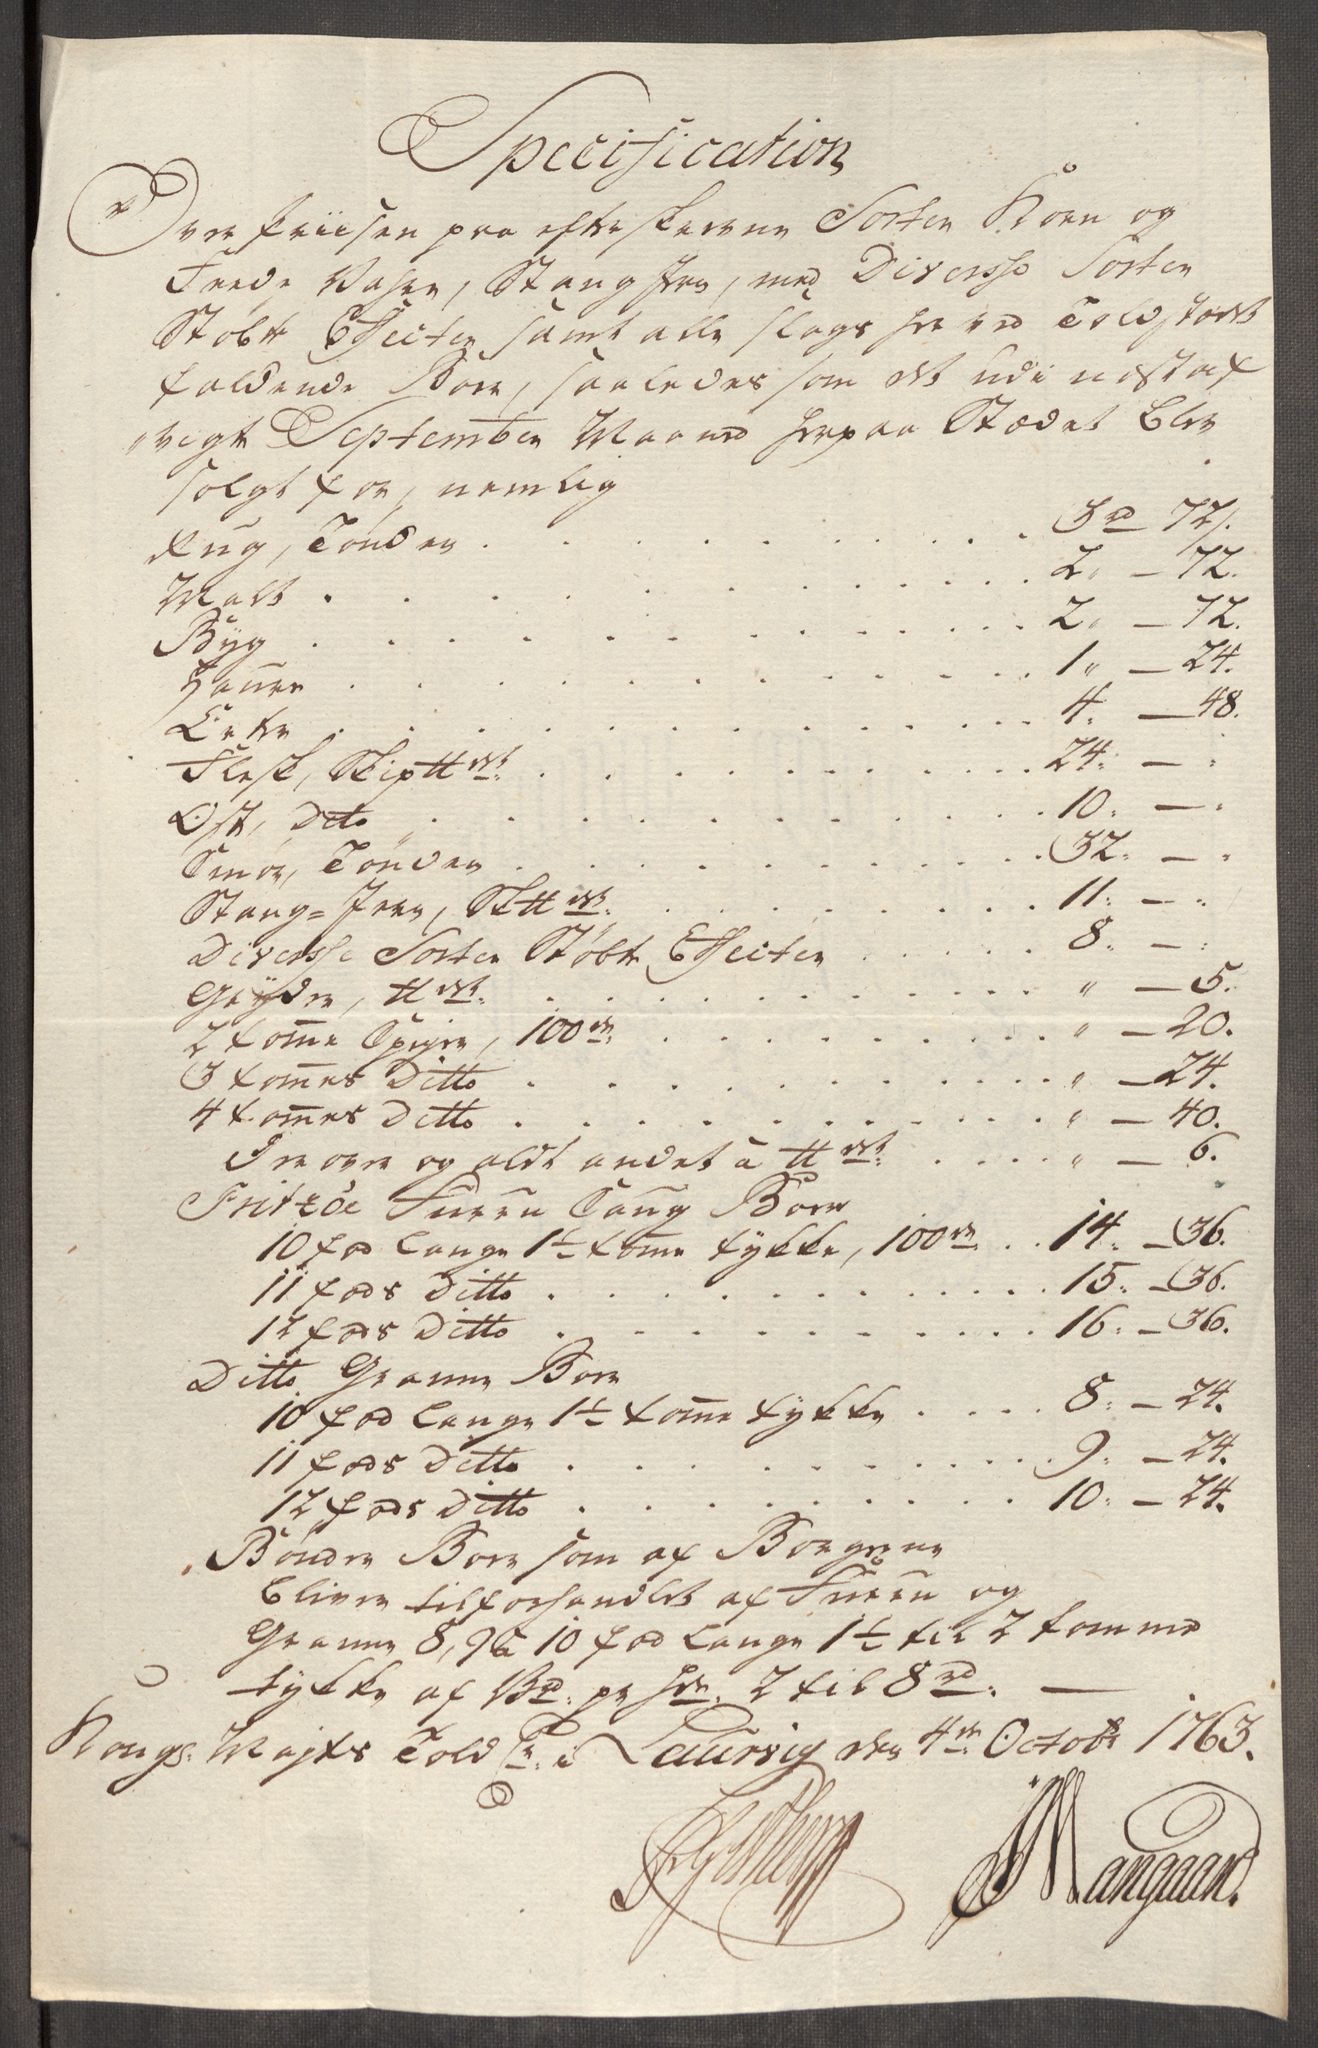 Specification
Over Priisen paa efterskrevne Sorter Korn og
Fede Vahre, Stang Jern, med Diversse Sorter
Støbte Effecter samt alle slags her ved Toldstædet
faldende Bord, saaledes som det udi næst af
vigte September Maaned her paa Stædet blev
solgt for, nemlig
Rug, Tønden . . . 3 rd 72 s.
Malt . . . 2 „ — 72.
Byg . . . 2 „ — 72.
Haver . . . 1 „ — 24.
Erter . . . 4 „ — 48.
Flesk, Skip ℔det . . . 24 : — :
Ost, Dito . . . 10 : — :
Smør, Tønden . . . 32 : — :
Stang=Jern, Sk℔det . . . 11 : — :
Diversse Sorter Støbte Effecter . . . 8 : — :
Gryder, ℔det . . . „ — 5.
2 tomme Spiger, 100de . . . „ — 20.
3 tommes Ditto . . . „ — 24.
4 tommes Ditto . . . „ — 40.
og aldt andet à ℔det . . . „ — 6.
Fritzøe Furru Saug Bord
10 fod lange 1½ tomme tykke, 100de . . 14 : — 36.
11 fods Ditto . . . 15 : — 36.
12 fods Ditto . . . 16 : — 36.
Ditto Granne Bord
10 fod lange 1½ tomme tykke . . . 8 : — 24.
11 fods Ditto . . . 9 : — 24.
12 fods Ditto . . . 10 : — 24.
Bønder Bord som af Borgerne
bliver tilforhandlet af Furru og
Granne 8, 9 à 10 fod lange 1½ til 2 tomme
tykke af Brd: pr Hde. 2 til 8 rd. —
Kongs. Majts Told C: i Laurvig den 4de Octobr 1763.
Mangaard.